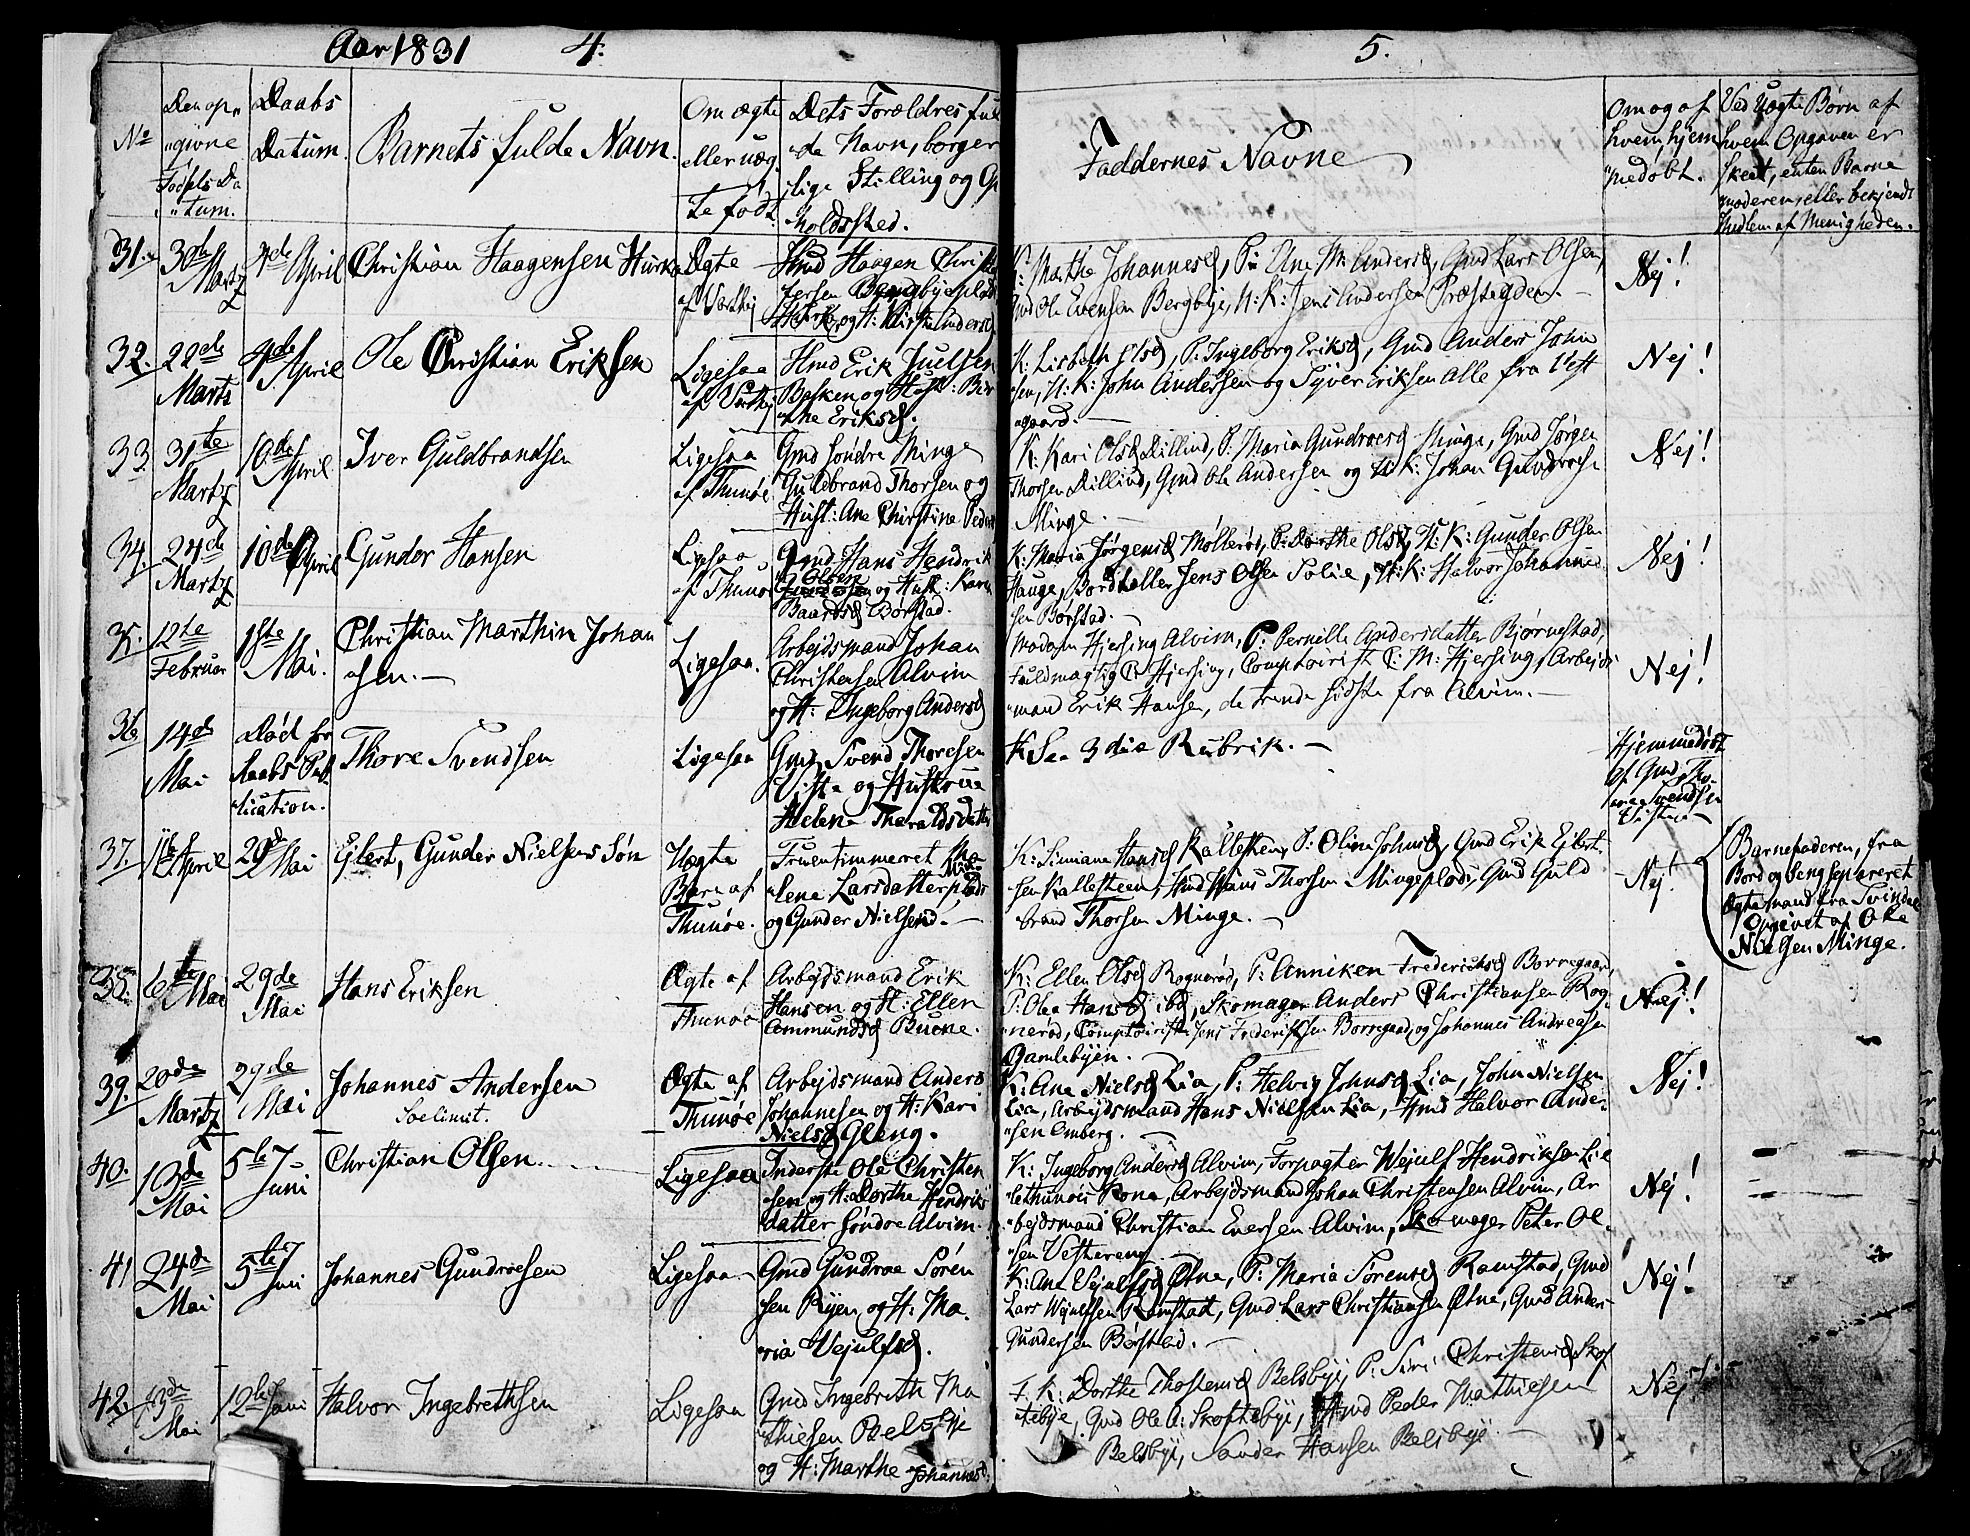 Aar 1831
4.
5.
No
Den op-
"givne
Fødsels Da
"tum.
Daabs
Datum.
Barnets fulde Navn.
Om ægte
eller uæg
te født.
Dets Forældres ful
de Navn, borger
lige Stilling og Op
holdssted.
Faddernes Navne
Om og af
hvem hjem
medøbt.
Ved Uægte Børn af
hvem Opgaven er
skeet, enten Barne
moderen, eller bekjendt
Medlem af Menigheden.
31.
30te
Martz
4de April
Christian Haagensen
Ægte
Hmd Haagen Christ
og H: Kirstin Anders
K: Marthe Johannesd, P: Ane M: Andersd, Gmd Lars Olsen,
Gmd Ole Evensen Bergbye, U: K: Jens Andersen Præstegden.
Nej!
32.
22de
Martz
4de April
Ole Christian Eriksen
Ligesaa
Hmd Erik Juelsen
Bakken og Hust: Ber
the Eriksd.
K: Lisbeth Olsd, P: Ingeborg Eriksd, Gmd Anders John
sen, U: K: John Andersen og Syver Eriksen alle fra Vest
gaard.
Nej!
33.
31te
Martz
10de April
Iver Guldbrandsen
Ligesaa
af Thunøe
Gmd Søndre Minge
Guldbrand Thorsen og
Hust: Ane Christine Peders
K: Kari Olsd Lillind, P: Maria Gundroesd Minge, Gmd Jørgen
Thorsen Lillind, Gmd Ole Andersen og U: K: Johan Gundroes
Minge.
Nej!
34.
24d
Martz
10de April
Gundor Hansen
Ligesaa
af Thunøe
Gmd Hans Hendrik
Olsen
og Hust: Karen
Baardsd Børstad.
K: Maria Jørgensd Møllerød, P: Dorthe Olsd, U: K: Gunder Olsen
Hauge, Bordskaller Jens Olsen Solie, U: K: Halvor Johanne
sen Børstad.
Nej!
35.
12te
Februar
1ste
Mai.
Christian Marthin Johan
sen.
Ligesaa.
Arbejdsmand Johan
Christensen Alvim
og H: Ingeborg Andersd
Madam Hjersing Alvim, P: Pernille Andersdatter Bjørnestad,
Fuldmægtig P Hjersing, Comptoirist C: M: Hjersing, Arbejds
mand Erik Hansen, de trende sidste fra Alvim.
Nej!
36
14de
Mai
Død før
Daabs Pub
lication.
Thore Svendsen
Ligesaa
Gmd Svend Thoresen
Viste og Hustrue
Helene Tharaldsdatter
K See 3die Rubrik.
Hjemmedøbt
af Gmd Tho-
re Svendsen
Viste
37.
11te April
29d Mai
Ejlert, Gunder Nielsens Søn
Uægte
Barn af
Thunøe.
Fruentimmeret Ma
lene Larsdatter
og Gunder Nielsen.
K: Simiane Hansd Kallesteen, P: Oline Johnsd, Gmd Erik Ejlert-
sen Kallesteen, Hmd Hans Thorsen Mingeplads, Gmd Guld
brand Thorsen Minge.
Nej!
Barnefaderen, fra
Bord og Seng separeret
Ægtemand fra Svindal
Opgivet af Ole
Nielsen Minge.
38.
6te Mai
29de
Mai
Hans Eriksen
Ægte af
Thunøe
Arbejdsmand Erik
Hansen og H: Ellen
Ammundsd Buene.
K: Ellen Olsd Rognerød, P: Anniken Frederiksd Borregaard,
P: Olea Hansd ibd, Skomager Anders Christiansen Rog-
nerød, Comptoirist Jens Frederiksen Borregaard, og Johannes Andreasen
Gamlebyen.
Nej!
39.
20de
Martz
29de
Mai
Johannes Andersen
Soelimit.
Ægte af
Thunøe
Arbejdsmand Anders
Johannesen og H: Kari
Nielsd Gleng.
K: Ane Nielsd Lia, P: Helvig Johnsd Lia, John Nielsen
Lia, Arbejdsmand Hans Nielsen Lia, Hmd Halvor Ander-
sen Omberg.
Nej!
40.
13de
Mai
5te
Juni
Christian Olsen
Ligesaa
Inderste Ole Christen
sen og H: Dorthe Hendriks
datter Søndre Alvim.
K: Ingeborg Andersd Alvim, Forpagter Wejulf Hendriksen Lie
lethunøis Kone, Arbejdsmand Johan Christensen Alvim, Ar
bejdsmand Christian Eversen Alvim, Skomager Peter Ol-
sen Vestereng
Nej!
41
24de
Mai
5te Juni
Johannes Gundroesen
Ligesaa
Gmd Gundroe Søren
sen Ryen og H: Ma-
ria Vejulfsd.
K: Ane Vejulfsd Østne, P: Maria Sørensd Ramstad, Gmd
Lars Wejulfsen Ramstad, Gmd Lars Christiansen Østne, Gmd Anders
Gundersen Børstad.
Nej!
42.
13de
Mai
12te Juni
Halvor Ingebrethsen
Ligesaa
Gmd Ingebreth Ma
thiesen Belsbye
og H: Marthe Johannesd.
F. K: Dorthe Thostensd Belsbye, P: Siri Christensd Skof
tebye, Gmd Ole A: Skoftebye, Gmd Peder Mathiesen
Belsbye, Sander Hansen Belsbye.
Nej!